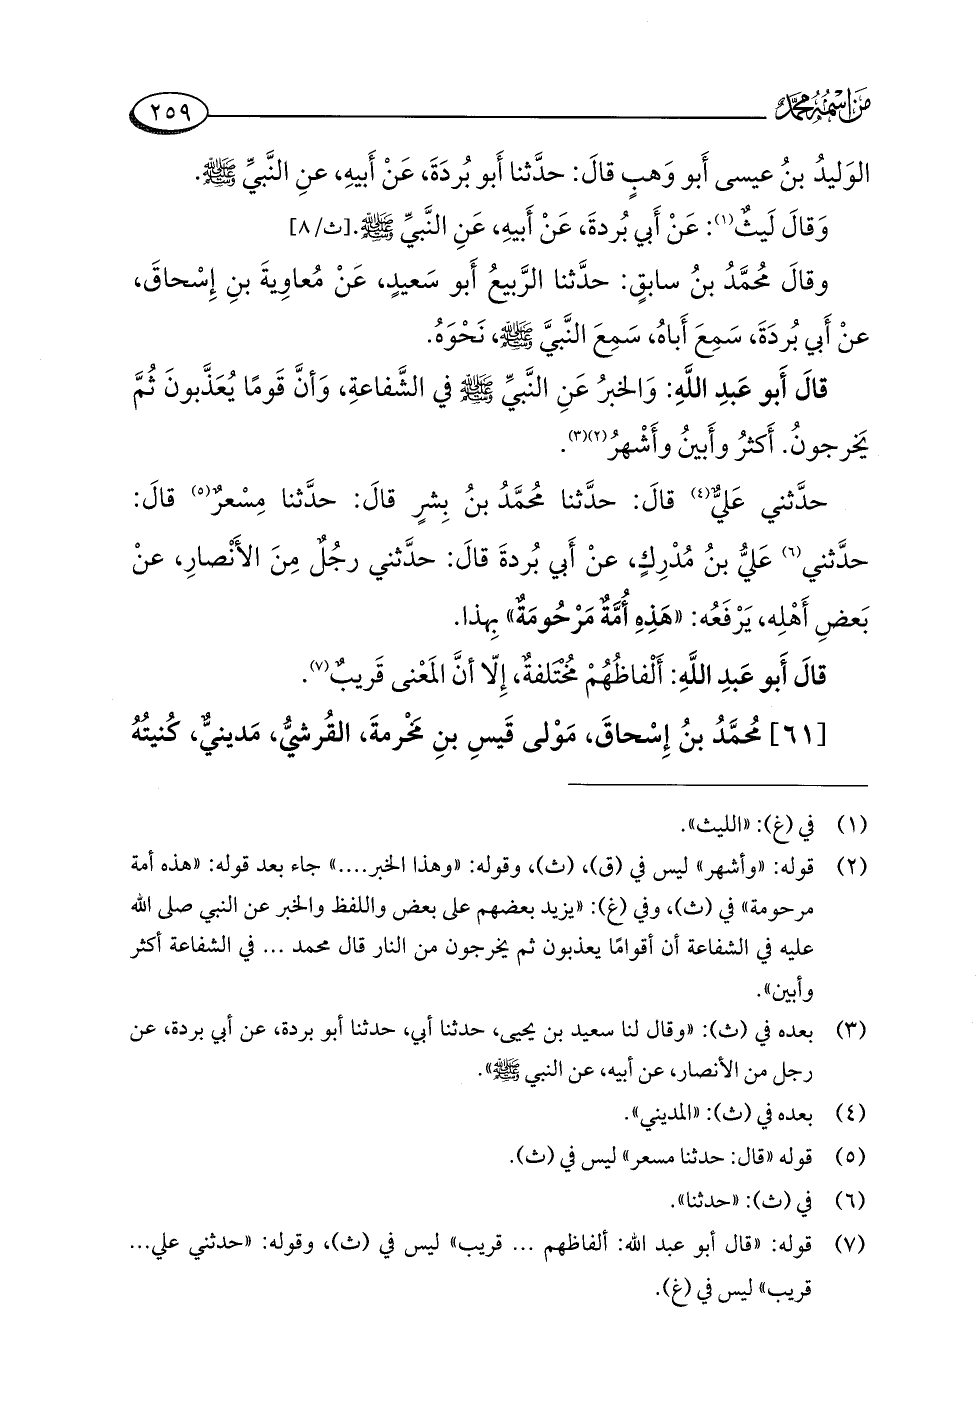 من اسمه محمد
٢٥٩
الوَليدُ بنُ عيسى أَبو وَهبٍ قالَ: حدَّثنا أَبو بُردَةَ، عَنْ أَبيهِ، عنِ النَّبيِّ ﷺ.
وَقالَ لَيثٌ(١): عَنْ أَبي بُردةَ، عَنْ أَبيهِ، عَنِ النَّبيِّ ﷺ.[ث/٨]
وقالَ مُحمَّدُ بنُ سابقٍ: حدَّثنا الرَّبيعُ أَبو سَعيدٍ، عَنْ مُعاويةَ بنِ إِسْحاقَ،
عنْ أَبي بُردَةَ، سَمِعَ أَباهُ، سَمِعَ النَّبيَّ ﷺ، نَحْوَهُ.
قالَ أَبو عَبدِ اللَّهِ: وَالخبرُ عَنِ النَّبيِّ ﷺ في الشَّفاعةِ، وَأنَّ قَومًا يُعَذَّبونَ ثُمَّ
يَخرجونُ. أَكثرُ وأَبينُ وأَشْهرُ(٢)(٣).
حدَّثني عَليٌّ(٤) قالَ: حدَّثنا مُحمَّدُ بنُ بِشرٍ قالَ: حدَّثنا مِسْعرٌ(٥) قالَ:
حدَّثني(٦) عَليُّ بنُ مُدْركٍ، عنْ أَبي بُردةَ قالَ: حدَّثني رجُلٌ مِنَ الأَنْصارِ، عنْ
بَعضِ أَهْلِه، يَرْفَعُه: «هَذِهِ أُمَّةٌ مَرْحُومَةٌ» بِهذا.
قالَ أَبو عَبدِ اللَّهِ: أَلْفاظُهُمْ مُخْتَلفةٌ، إِلّا أنَّ المَعْنى قَريبٌ(٧).
[٦١] مُحمَّدُ بنُ إِسْحاقَ، مَوْلى قَيسِ بنِ مَخْرمةَ، القُرشيُّ، مَدينيٌّ، كُنيتُهُ
(١) في (غ): «الليث».
(٢) قوله: «وأشهر» ليس في (ق)، (ث)، وقوله: «وهذا الخبر....» جاء بعد قوله: «هذه أمة
مرحومة» في (ث)، وفي (غ): «يزيد بعضهم على بعض واللفظ والخبر عن النبي صلى الله
عليه في الشفاعة أن أقوامًا يعذبون ثم يخرجون من النار قال محمد ... في الشفاعة أكثر
وأبين».
(٣) بعده في (ث): «وقال لنا سعيد بن يحيى، حدثنا أبي، حدثنا أبو بردة، عن أبي بردة، عن
رجل من الأنصار، عن أبيه، عن النبي ﷺ».
(٤) بعده في (ث): «المديني».
(٥) قوله «قال: حدثنا مسعر» ليس في (ث).
(٦) في (ث): «حدثنا».
(٧) قوله: «قال أبو عبد الله: ألفاظهم ... قريب» ليس في (ث)، وقوله: «حدثني علي...
قريب» ليس في (غ).